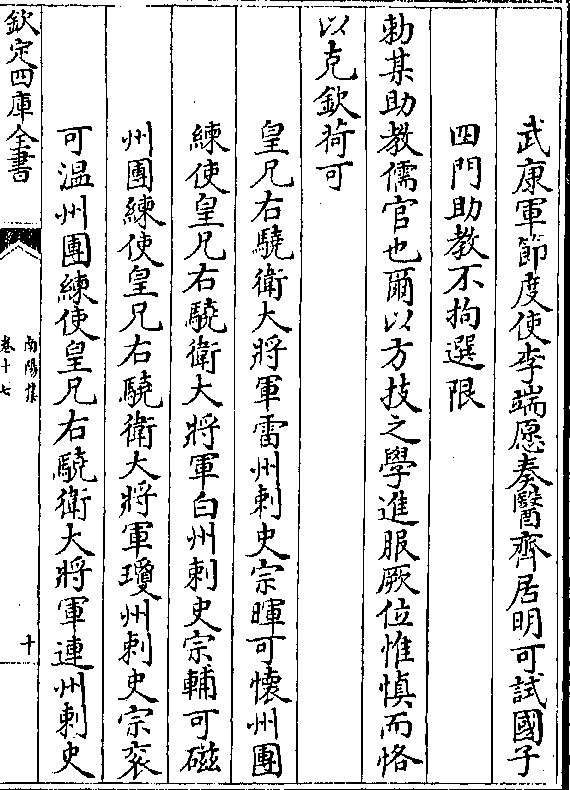 武康軍節度使李端愿奏醫齊居明可試國子
四門助教不拘選限
勅某助教儒官也爾以方技之學進服厥位惟慎而恪
以克欽荷可
皇兄右驍衛大將軍雷州刺史宗暉可懷州團
練使皇兄右驍衛大將軍白州刺史宗輔可磁
州團練使皇兄右驍衛大將軍瓊州刺史宗衮
可温州團練使皇兄右驍衛大將軍連州刺史
欽定四庫全書
南陽集
卷十七
十